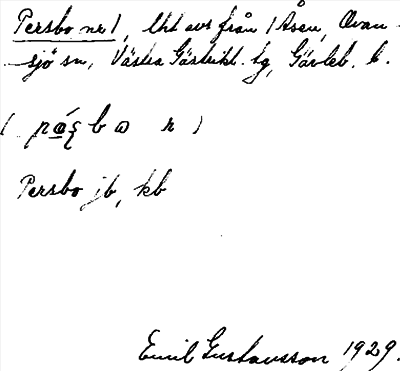 Persbo nr 1, lht avs från 1 Åsen, Ovan-
sjö sn, Västra Gästrikl. tg, Gävleb. l.
Persbo jb, kb
Emil Gustavsson 1929.